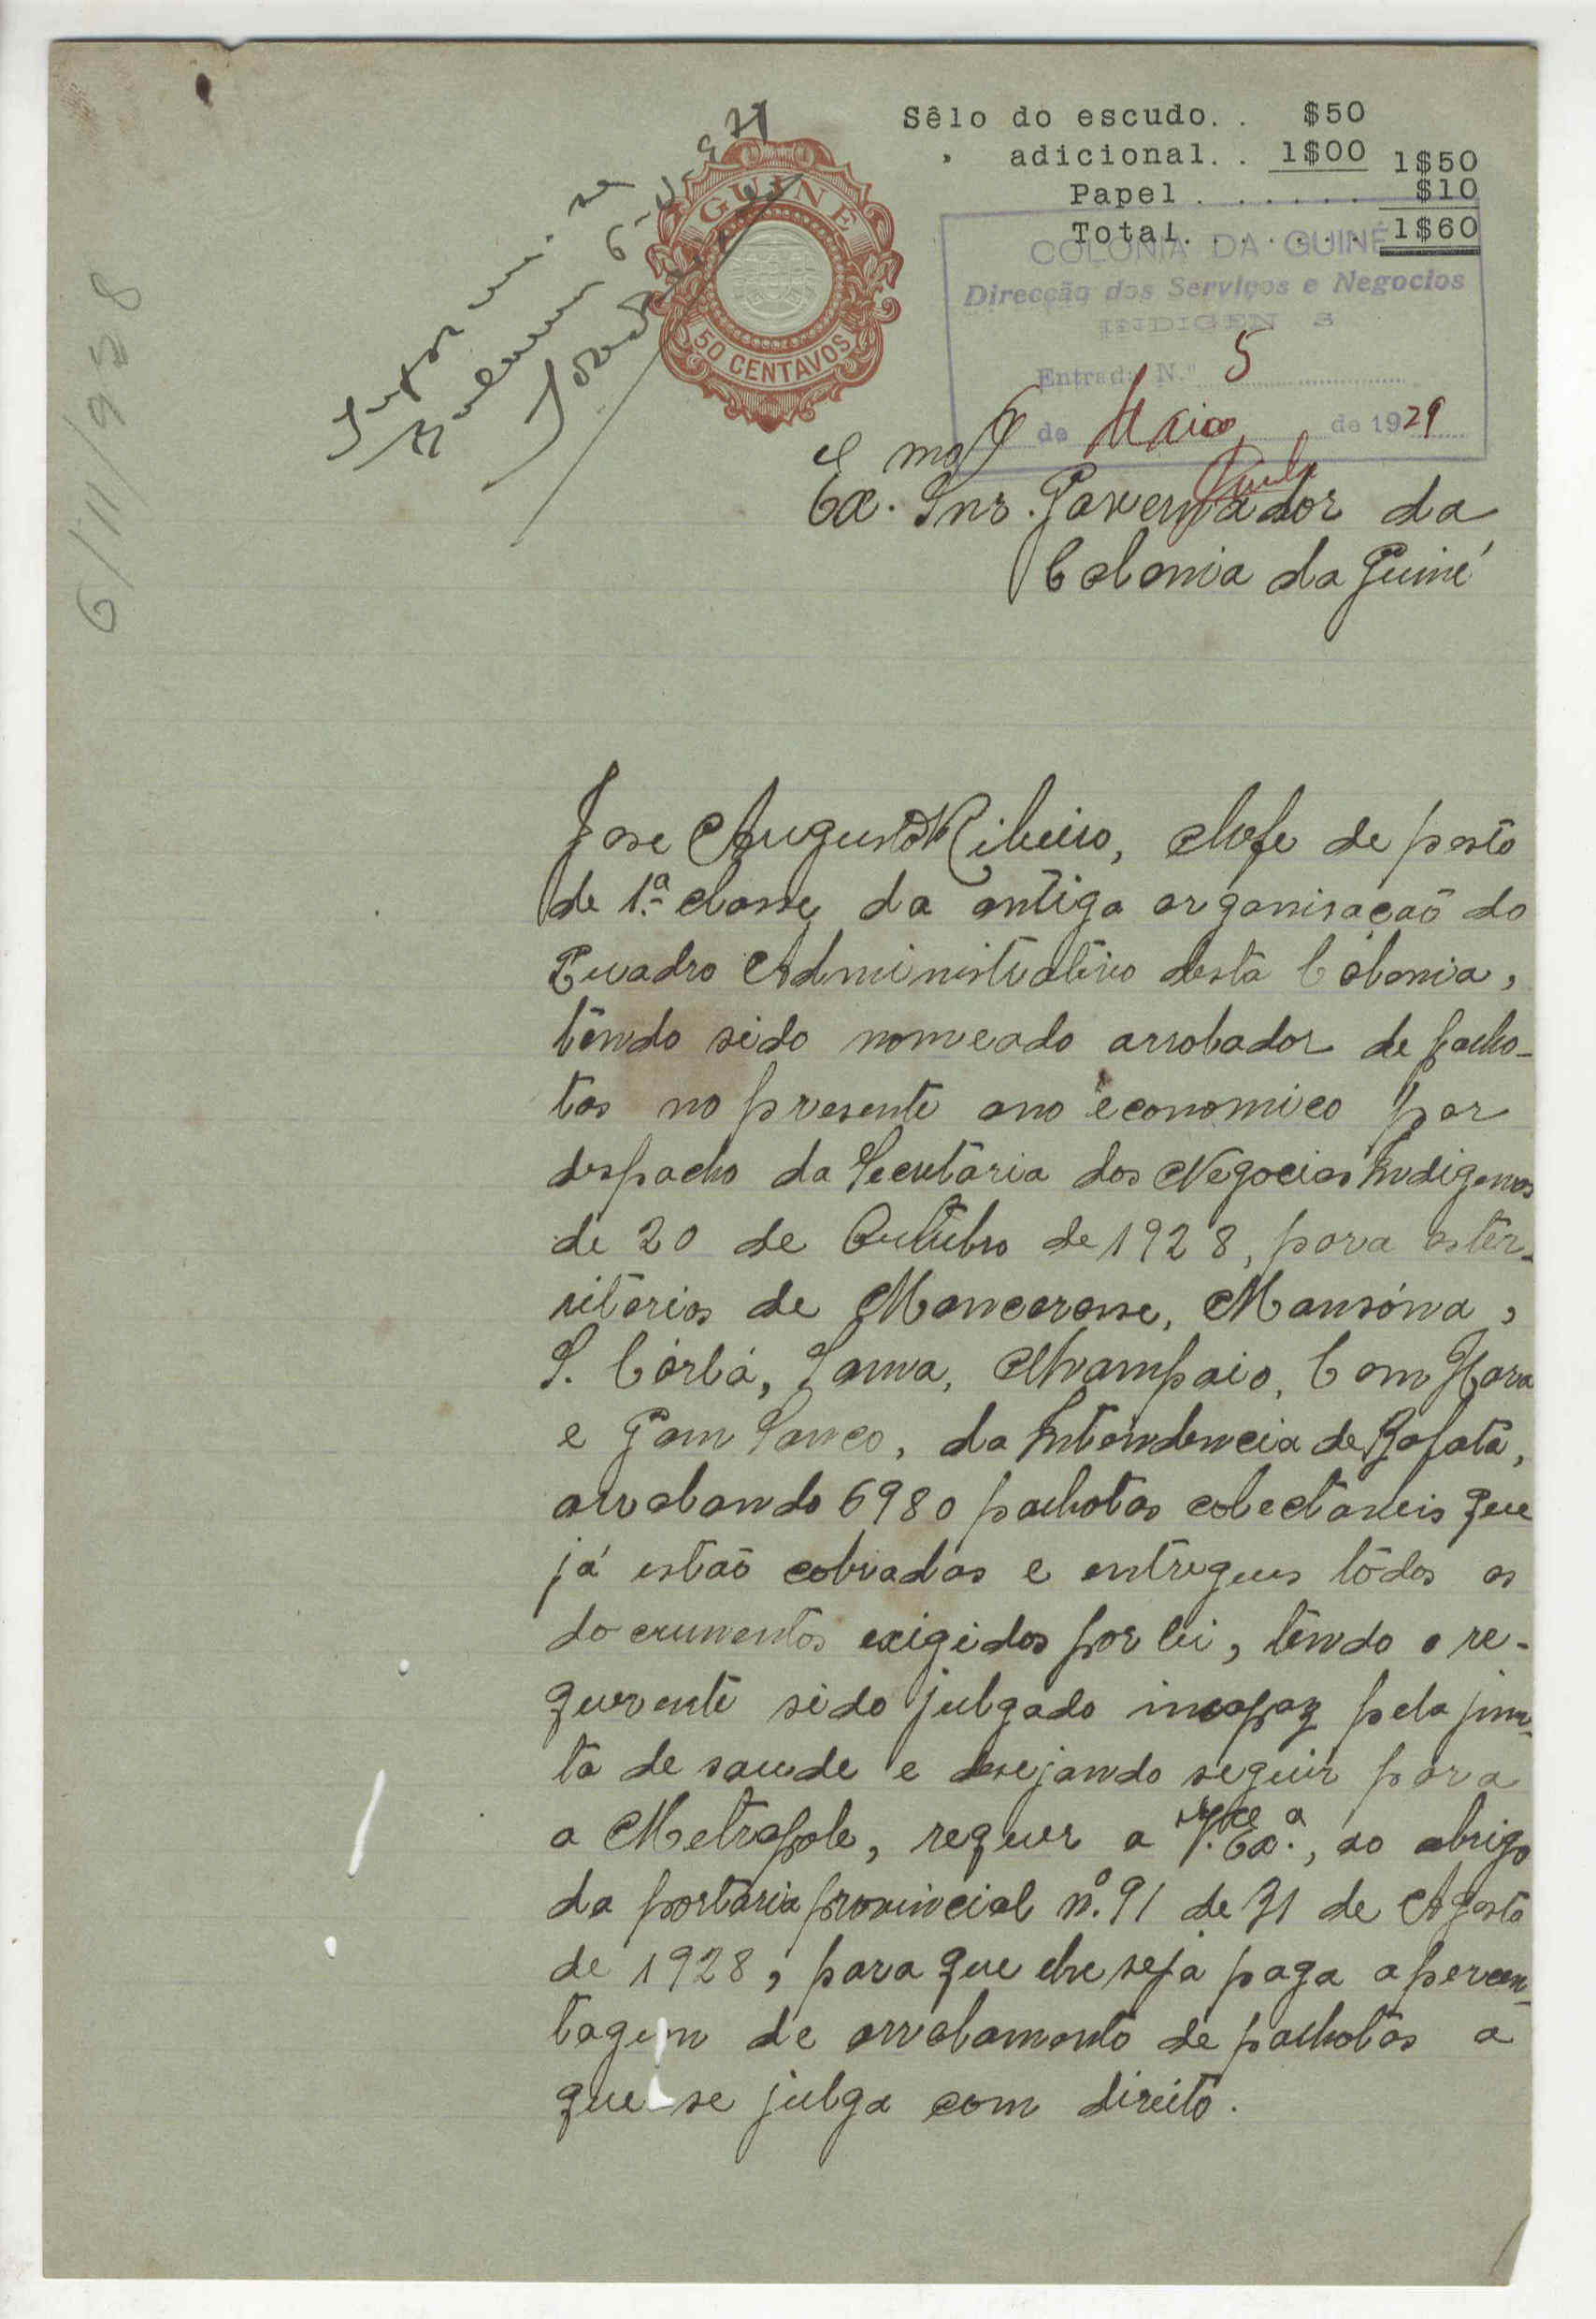 Sêlo do escudo. . $50
" adicional. . 1$00 1$50
Papel . . . . . . . $10
Total. . . . . . . 1$60
GUINÉ
50 CENTAVOS
COLONIA DA GUINÉ
Direcção dos Serviços e Negocios
INDIGEN S
Entrada N.º 5
de Maio de 1929
6/11/958
Exmo. Snr. Governador da
Colonia da Guiné
Jose Augusto Ribeiro, chefe de posto
de 1.ª classe da antiga organisação do
Quadro Administrativo desta Colonia,
têndo sido nomeado arrolador de palho-
tas no presente ano economico por
despacho da Secretaria dos Negocios Indigenas
de 20 de Outubro de 1928, para os ter-
ritorios de Mancorosse, Mansôna,
S. Córlá, Sanva, Cam Hara
e Gam Sanco, da Intendencia de Bafatá,
arrolando 6980 palhotas colectaveis que
já estão cobradas e entregues tôdos os
documentos exigidos por lei, têndo o re-
querente sido julgado incapaz pela jun-
ta de saude e desejando seguir para
a Metropole, requer a V. Exª., ao abrigo
da portaria provincial nº. 91 de 31 de Agosto
de 1928, para que lhe seja paga a percen-
tagem de arrolamento de palhotas a
que se julga com direito.